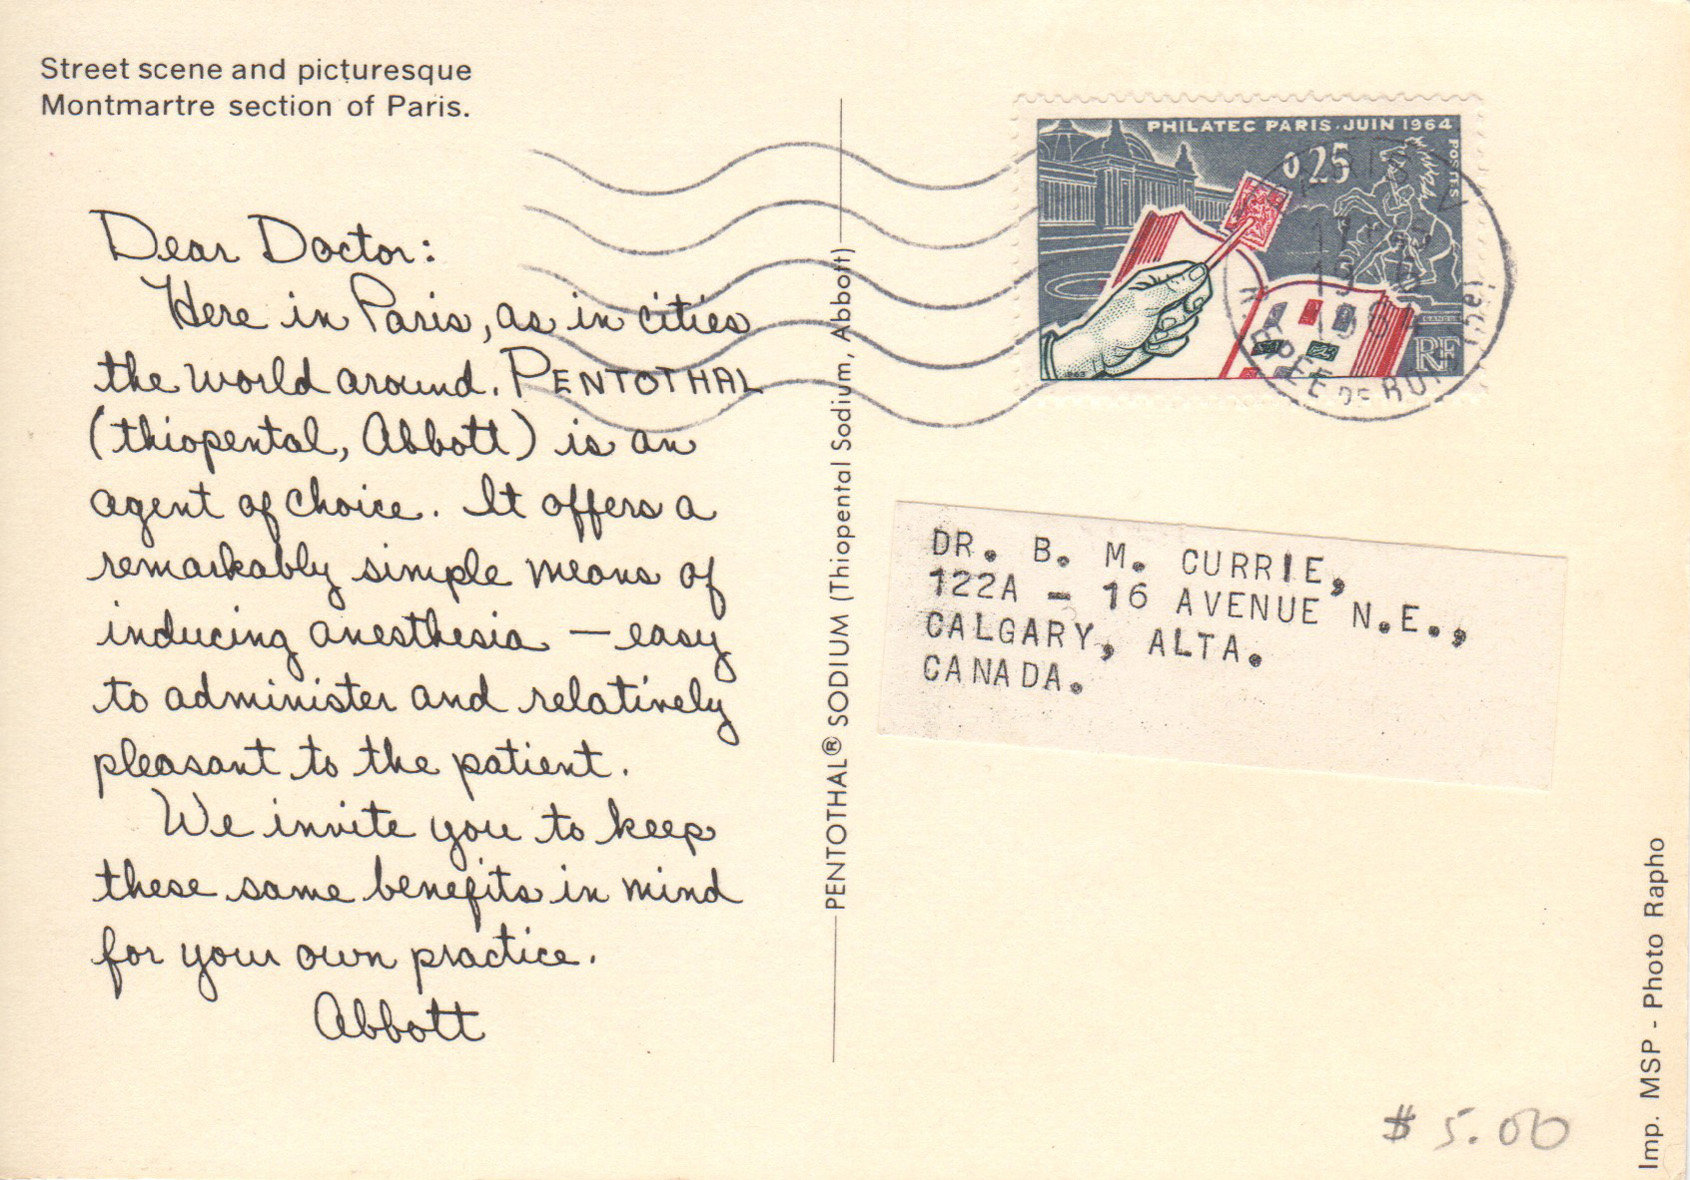 Street scene and picturesque
Montmartre section of Paris.
Dear Doctor:
Here in Paris, as in cities
the world around, PENTOTHAL
(thiopental, Abbott) is an
agent of choice. It offers a
remarkably simple means of
inducing anesthesia — easy
to administer and relatively
pleasant to the patient.
We invite you to keep
these same benefits in mind
for your own practice.
Abbott
PENTOTHAL® SODIUM (Thiopental Sodium, Abbott)
PHILATEC PARIS·JUIN 1964
0,25
POSTES
RF
1964
DR. B. M. CURRIE,
122A - 16 AVENUE N.E.,
CALGARY, ALTA.
CANADA.
Imp. MSP - Photo Rapho
$ 5.00